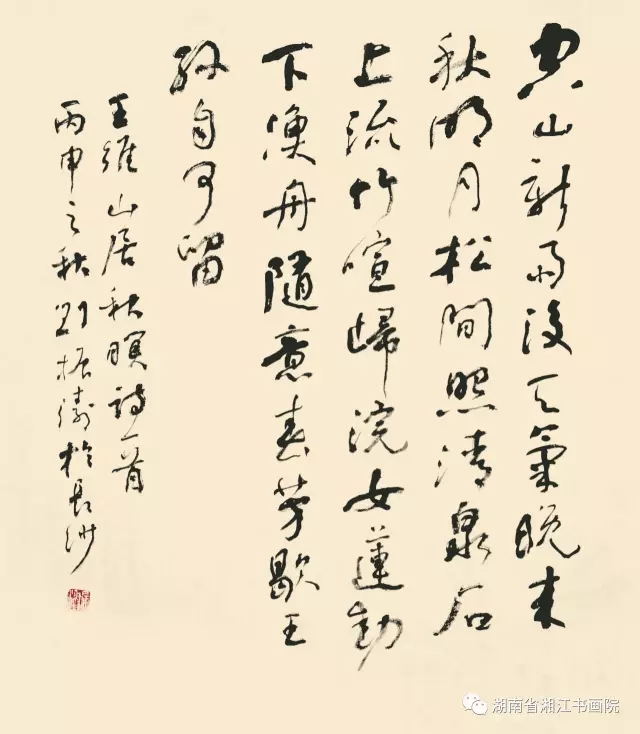 空山新雨後天氣晚来
秋明月松間照清泉石
上流竹喧歸浣女蓮動
下漁舟隨意春芳歇王
孫自可留
王維山居秋暝詩一首
丙申之秋劉振濤於長沙
湖南省湘江书画院